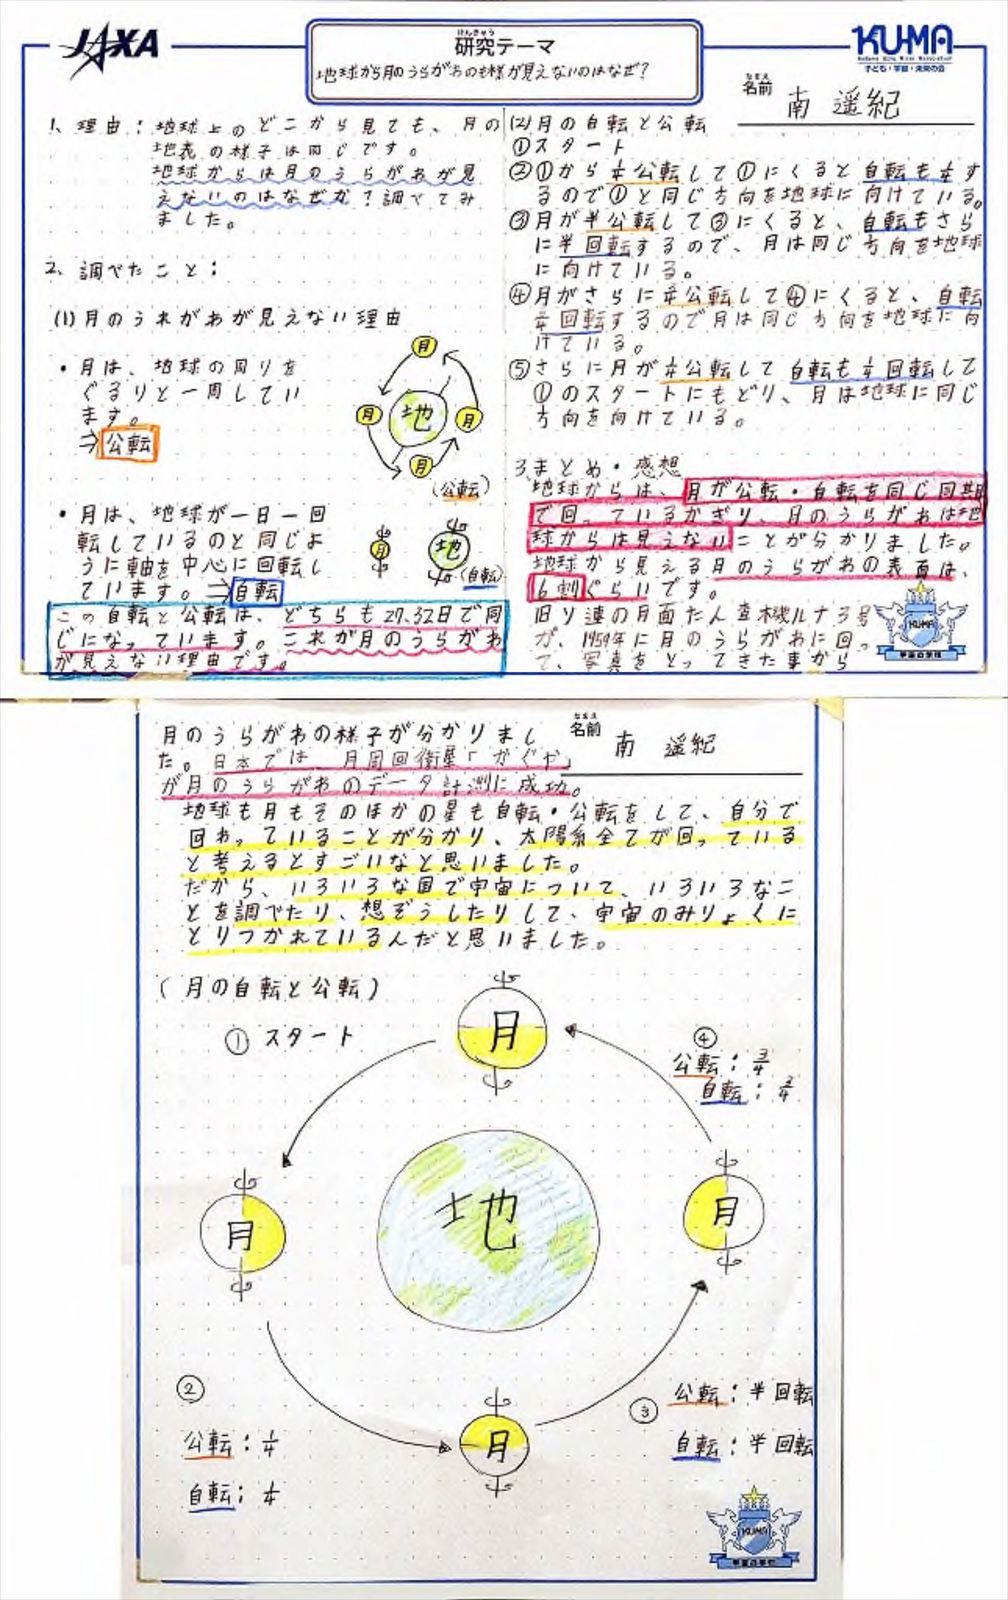 JAXA
けんきゅう
研究テーマ
地球から月のうらがわのも様が見えないのはなぜ?
KU-MA
子ども・宇宙・未来の会
なまえ
名前 南 遥紀
1、理由:地球上のどこから見ても、月の
地表の様子は同じです。
地球からは月のうらがわが見
えないのはなぜか?調べてみ
ました。
2、調べたこと:
(1)月のうらがわが見えない理由
・月は、地球の回りを
ぐるりと一周してい
ます。
⇒公転
月
月
地
月
月
(公転)
・月は、地球が一日一回
転しているのと同じよ
うに軸を中心に回転し
ています。⇒自転
月
地
(自転)
この自転と公転は、どちらも27.32日で同
じになっています。これが月のうらがわ
が見えない理由です。
(2)月の自転と公転
①スタート
②①から1/4公転して①にくると自転も1/4す
るので①と同じ方向を地球に向けている。
③月が半公転して③にくると、自転もさら
に半回転するので、月は同じ方向を地球
に向けている。
④月がさらに1/4公転して④にくると、自転
1/4回転するので月は同じ方向を地球に向
けている。
⑤さらに月が1/4公転して自転も1/4回転して
①のスタートにもどり、月は地球に同じ
方向を向けている。
3.まとめ・感想
地球からは、月が公転・自転を同じ同期
で回っているかぎり、月のうらがわは地
球からは見えないことが分かりました。
地球から見える月のうらがわの表面は、
6割ぐらいです。
旧ソ連の月面たん査機ルナ3号
が、1959年に月のうらがわに回っ
て、写真をとってきた事から
KU-MA
宇宙の学校
なまえ
名前 南 遥紀
月のうらがわの様子が分かりまし
た。日本では、月周回衛星「かぐや」
が月のうらがわのデータ計測に成功。
地球も月もそのほかの星も自転・公転をして、自分で
回わっていることが分かり、太陽系全てが回っている
と考えるとすごいなと思いました。
だから、いろいろな国で宇宙について、いろいろなこ
とを調べたり、想ぞうしたりして、宇宙のみりょくに
とりつかれているんだと思いました。
(月の自転と公転)
①スタート
月
④
公転:3/4
自転:3/4
月
地
月
②
公転:1/4
自転:1/4
月
③
公転:半回転
自転:半回転
KU-MA
宇宙の学校